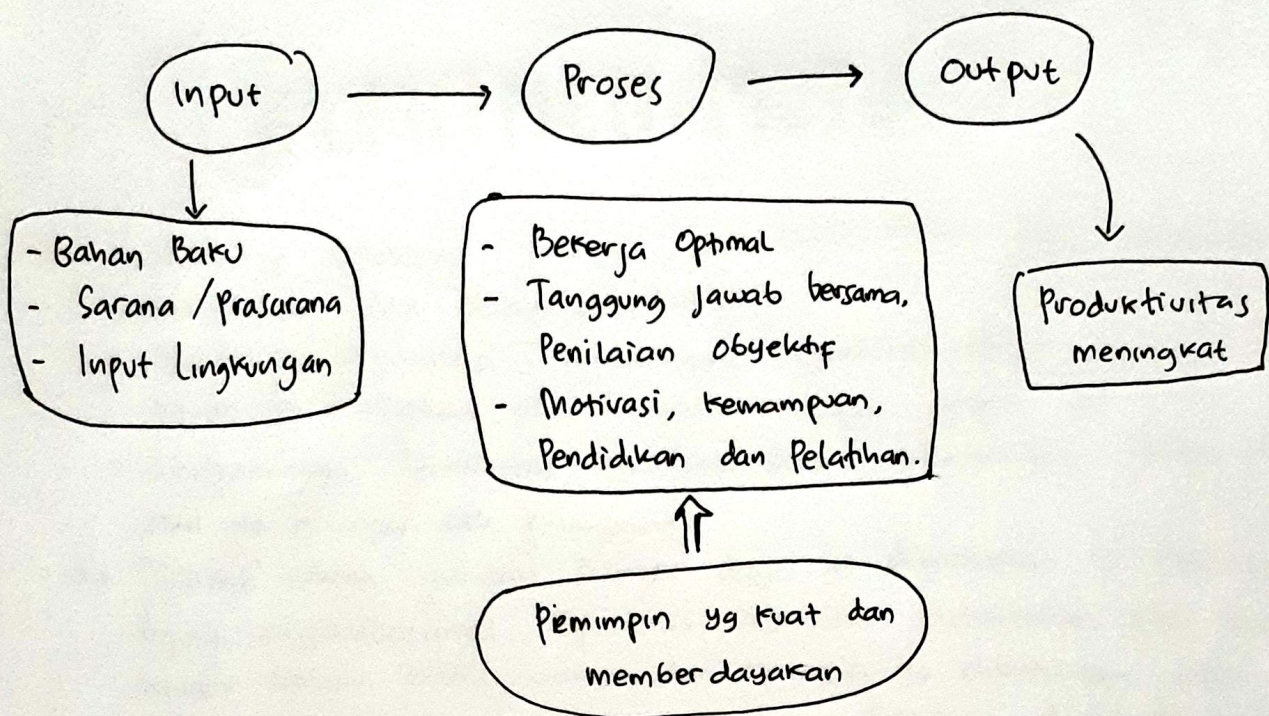 Input
Proses
Output
- Bahan Baku
- Sarana / Prasarana
- Input Lingkungan
- Bekerja Optimal
- Tanggung jawab bersama,
Penilaian obyektif
- Motivasi, kemampuan,
Pendidikan dan Pelatihan.
Produktivitas
meningkat
Pemimpin yg kuat dan
memberdayakan